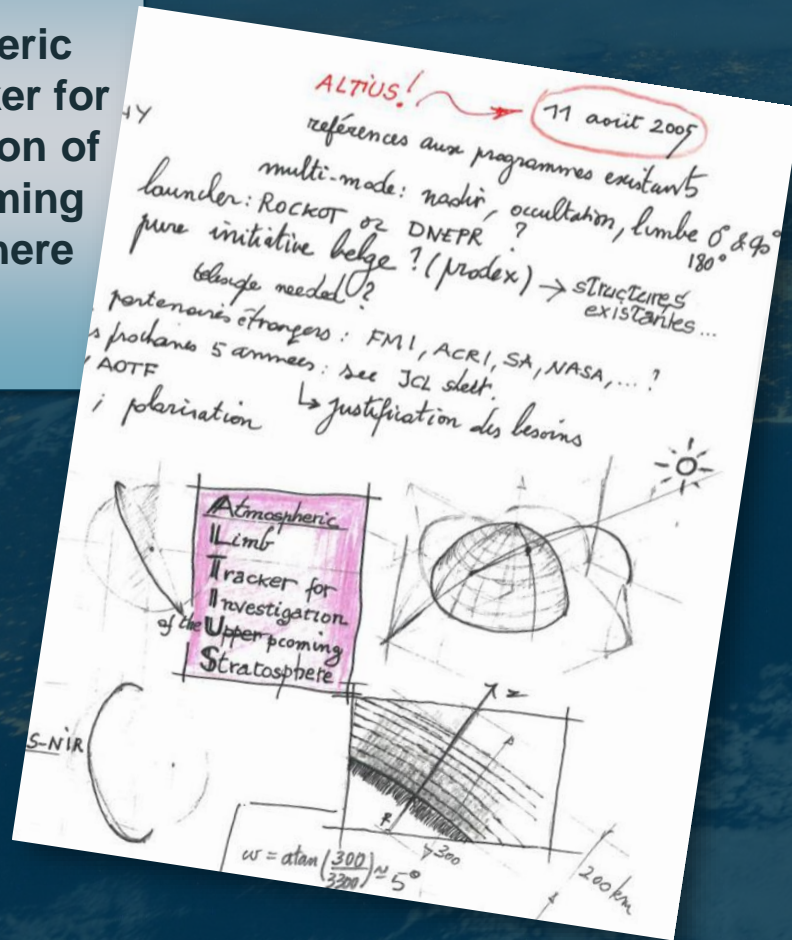 eric
ker for
on of
ming
here
ALTIUS!
11 août 2005
références aux programmes existants
multi-mode: nadir, occultation, limbe 0° & 90°
180°
launcher: ROCKOT or DNEPR ?
pure initiative belge ? (prodex) → structures
existantes...
needed ?
partenaires étrangers : FMI, ACRI, SA, NASA, ... ?
s prochaines 5 années : see JCL sheet.
AOTF
↳ justification des besoins
; polarisation
Atmospheric
Limb
Tracker for
Investigation
of the Upper pcoming
Stratosphere
S-NIR
z
R
300
200 km
w = atan (300/3300) ≃ 5°